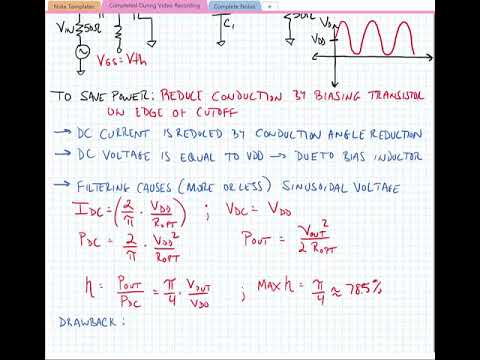 Note Templates
Completed During Video Recording
Complete Notes
VIN
50Ω
VGS = Vth
C1
50Ω
VDN
VDD
TO SAVE POWER: REDUCE CONDUCTION BY BIASING TRANSISTOR
ON EDGE OF CUTOFF
→ DC CURRENT IS REDUCED BY CONDUCTION ANGLE REDUCTION
→ DC VOLTAGE IS EQUAL TO VDD → DUE TO BIAS INDUCTOR
→ FILTERING CAUSES (MORE OR LESS) SINUSOIDAL VOLTAGE
IDC = (2/π · VDD/ROPT) ; VDC = VDD
PDC = 2/π · VDD²/ROPT POUT = VOUT²/2 ROPT
η = POUT/PDC = π/4 · VOUT/VDD ; MAX η = π/4 ≈ 78.5%
DRAWBACK: